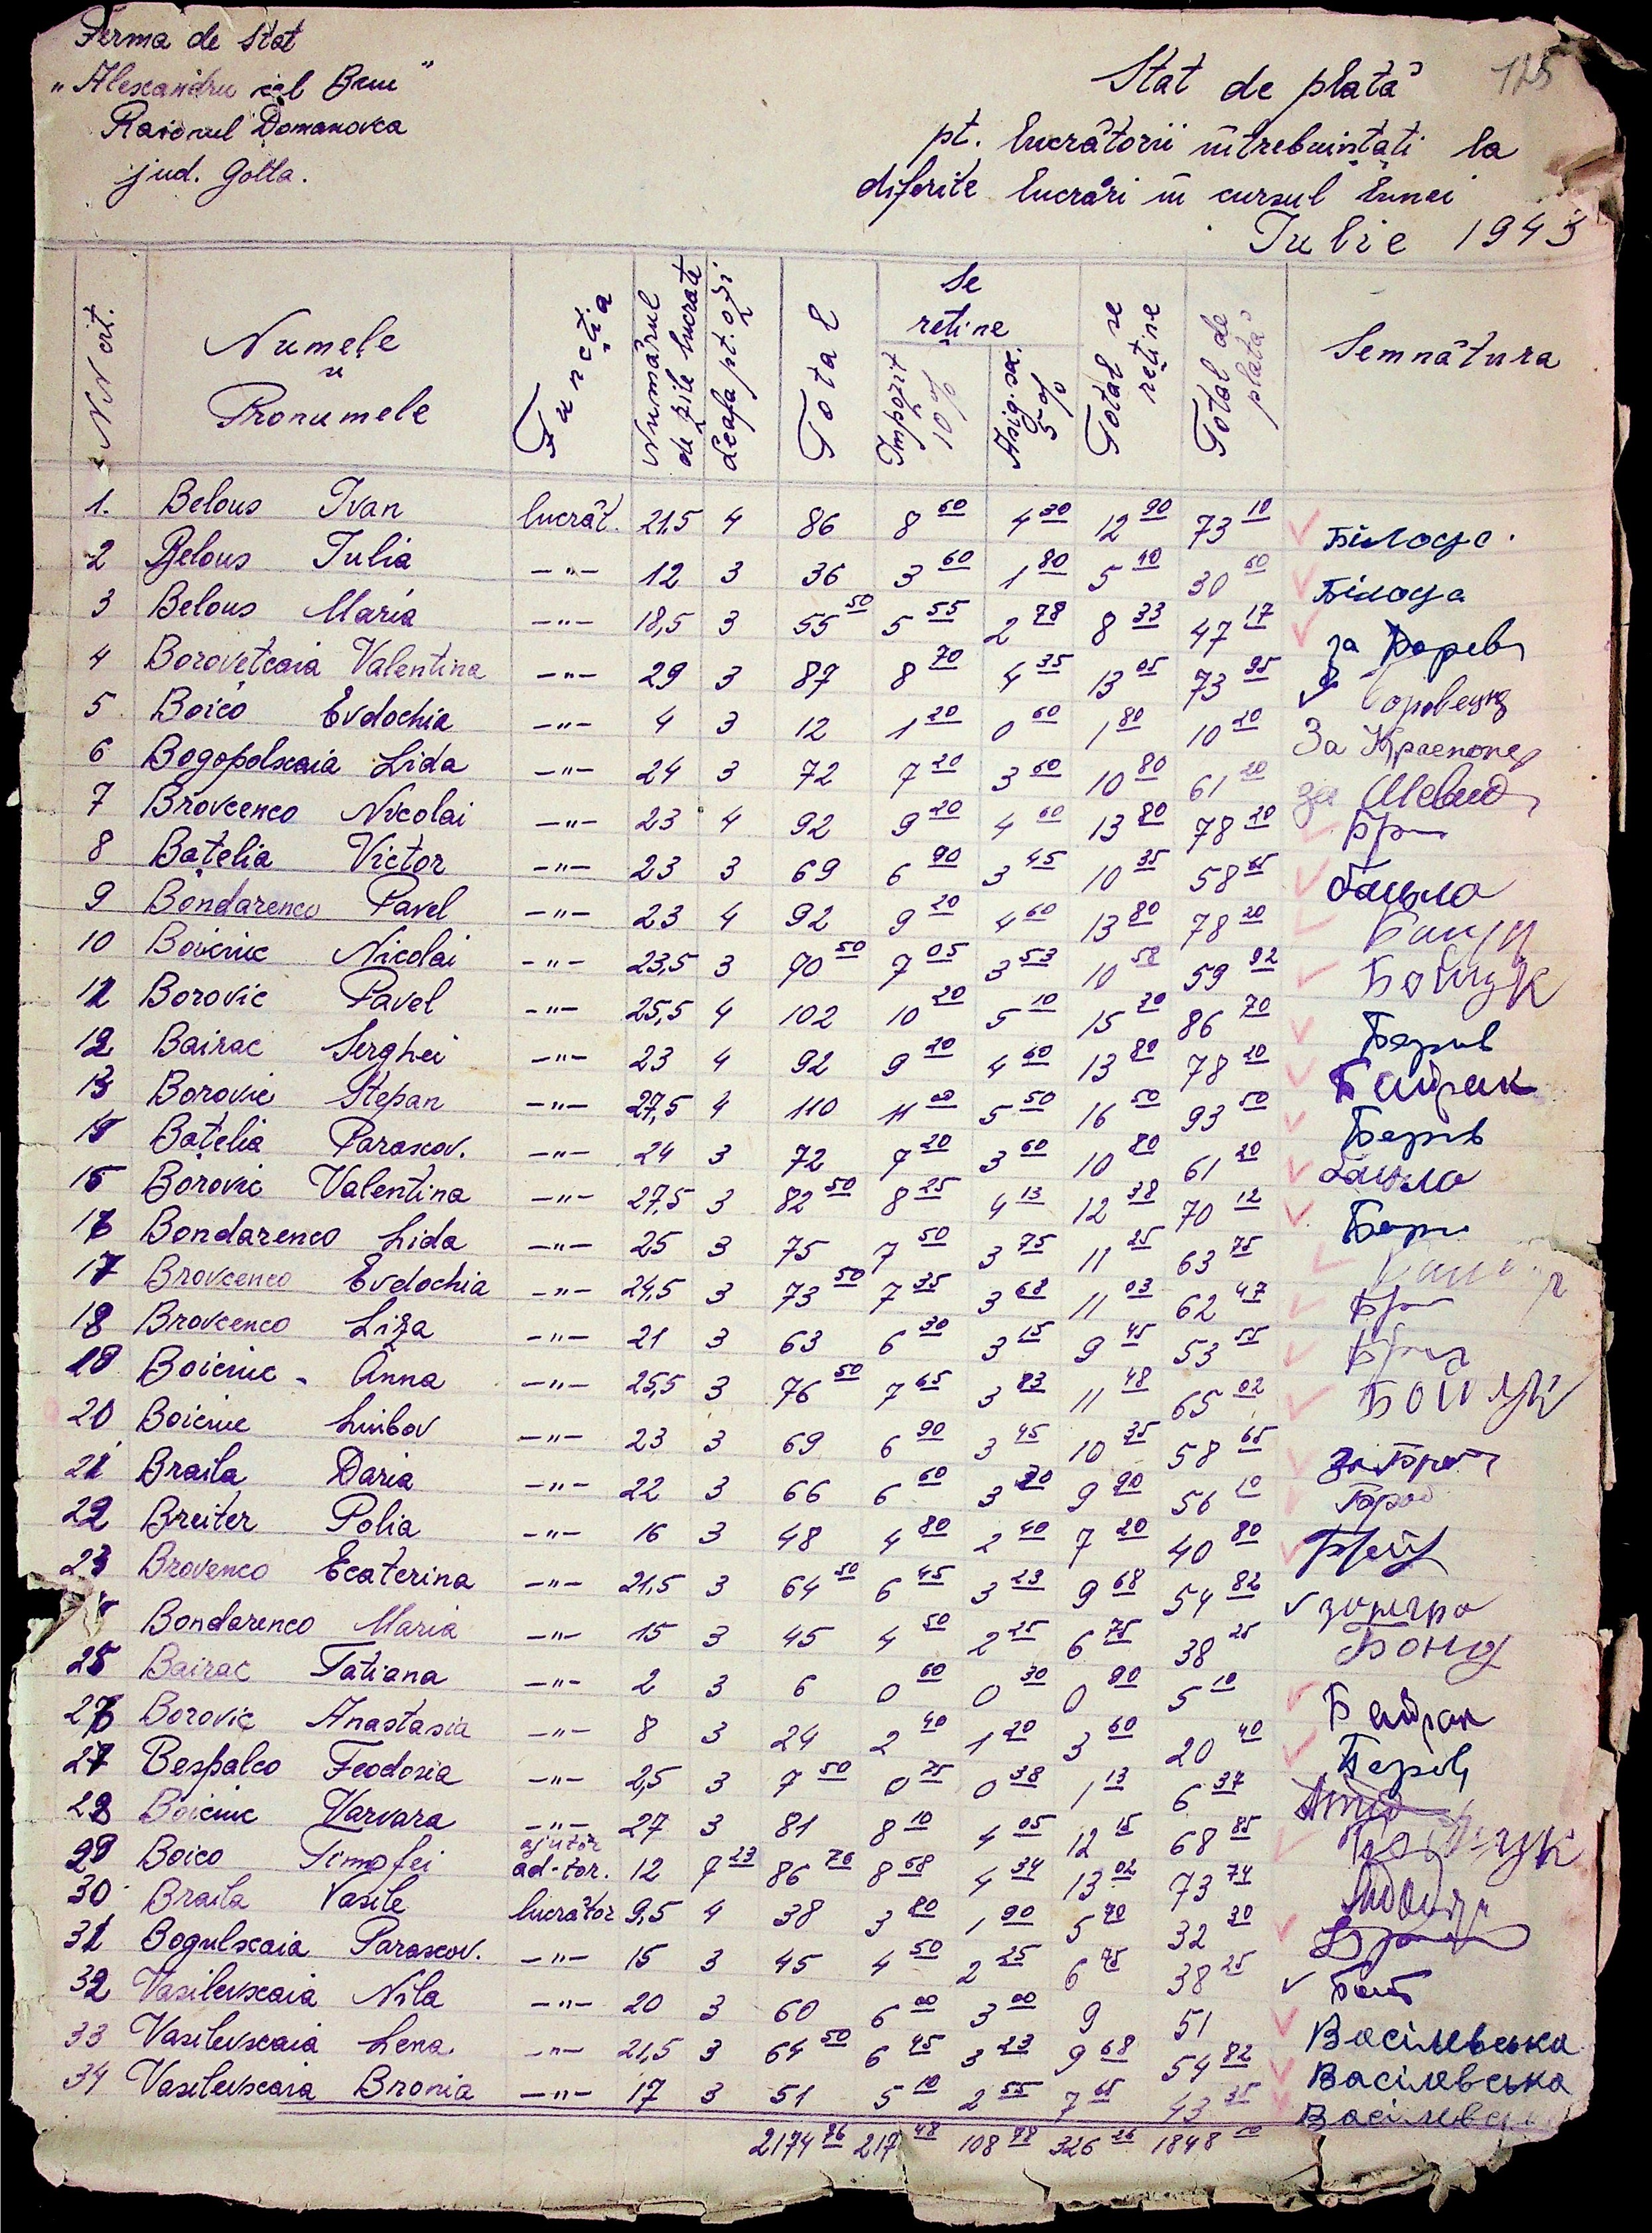 Ferma de Stat
„Alexandru cel Bun"
Raionul Domanovca
jud. Golta.
125
Stat de plată
pt. lucrătorii întrebuințați la
diferite lucrări în cursul lunei
Iulie 1943
NN crt. Numele și Pronumele Funcția Numărul de zile lucrate Leafa pt. o zi Total Se reține Impozit 10% Asig. soc. 5% Total se reține Total de plată Semnătura
1. Belous Ivan lucrăt. 21,5 4 86 8 60 4 30 12 90 73 10 Білоус.
2 Belous Iulia -"- 12 3 36 3 60 1 80 5 40 30 60 Білоус
3 Belous Maria -"- 18,5 3 55 50 5 55 2 78 8 33 47 17 за
4 Borovețcaia Valentina -"- 29 3 87 8 70 4 35 13 05 73 95
5 Boico Evdochia -"- 4 3 12 1 20 0 60 1 80 10 20 За
6 Bogopolscaia Lida -"- 24 3 72 7 20 3 60 10 80 61 20 за
7 Brovcenco Nicolai -"- 23 4 92 9 20 4 60 13 80 78 20
8 Bațelia Victor -"- 23 3 69 6 90 3 45 10 35 58 65
9 Bondarenco Pavel -"- 23 4 92 9 20 4 60 13 80 78 20
10 Boiciuc Nicolai -"- 23,5 3 70 50 7 05 3 53 10 58 59 92 Бойчук
11 Borovic Pavel -"- 25,5 4 102 10 20 5 10 15 30 86 70
12 Bairac Serghei -"- 23 4 92 9 20 4 60 13 80 78 20 Байрак
13 Borovic Stepan -"- 27,5 4 110 11 00 5 50 16 50 93 50
14 Bațelia Parascov. -"- 24 3 72 7 20 3 60 10 80 61 20
15 Borovic Valentina -"- 27,5 3 82 50 8 25 4 13 12 38 70 12
16 Bondarenco Lida -"- 25 3 75 7 50 3 75 11 25 63 75
17 Brovcenco Evdochia -"- 24,5 3 73 50 7 35 3 68 11 03 62 47
18 Brovcenco Liza -"- 21 3 63 6 30 3 15 9 45 53 55
19 Boiciuc Anna -"- 25,5 3 76 50 7 65 3 83 11 48 65 02 Бойчук
20 Boiciuc Liubov -"- 23 3 69 6 90 3 45 10 35 58 65
21 Braila Daria -"- 22 3 66 6 60 3 30 9 90 56 10
22 Breiter Polia -"- 16 3 48 4 80 2 40 7 20 40 80
23 Brovenco Ecaterina -"- 21,5 3 64 50 6 45 3 23 9 68 54 82
Bondarenco Maria -"- 15 3 45 4 50 2 25 6 75 38 25 Бонд
25 Bairac Tatiana -"- 2 3 6 0 60 0 30 0 90 5 10 Байрак
26 Borovic Anastasia -"- 8 3 24 2 40 1 20 3 60 20 40
27 Bespalco Feodosia -"- 2,5 3 7 50 0 75 0 38 1 13 6 37
28 Boiciuc Varvara -"- 27 3 81 8 10 4 05 12 15 68 85 Бойчук
29 Boico Timofei ajutor ad-tor. 12 7 23 86 76 8 68 4 34 13 02 73 74
30 Braila Vasile lucrător 9,5 4 38 3 80 1 90 5 70 32 30
31 Bogulscaia Parascov. -"- 15 3 45 4 50 2 25 6 75 38 25
32 Vasilevscaia Nila -"- 20 3 60 6 00 3 00 9 51 Васілевська
33 Vasilevscaia Lena -"- 21,5 3 64 50 6 45 3 23 9 68 54 82 Васілевська
34 Vasilevscaia Bronia -"- 17 3 51 5 10 2 55 7 65 43 35 Васілевська
2174 76 217 48 108 78 326 26 1848 50